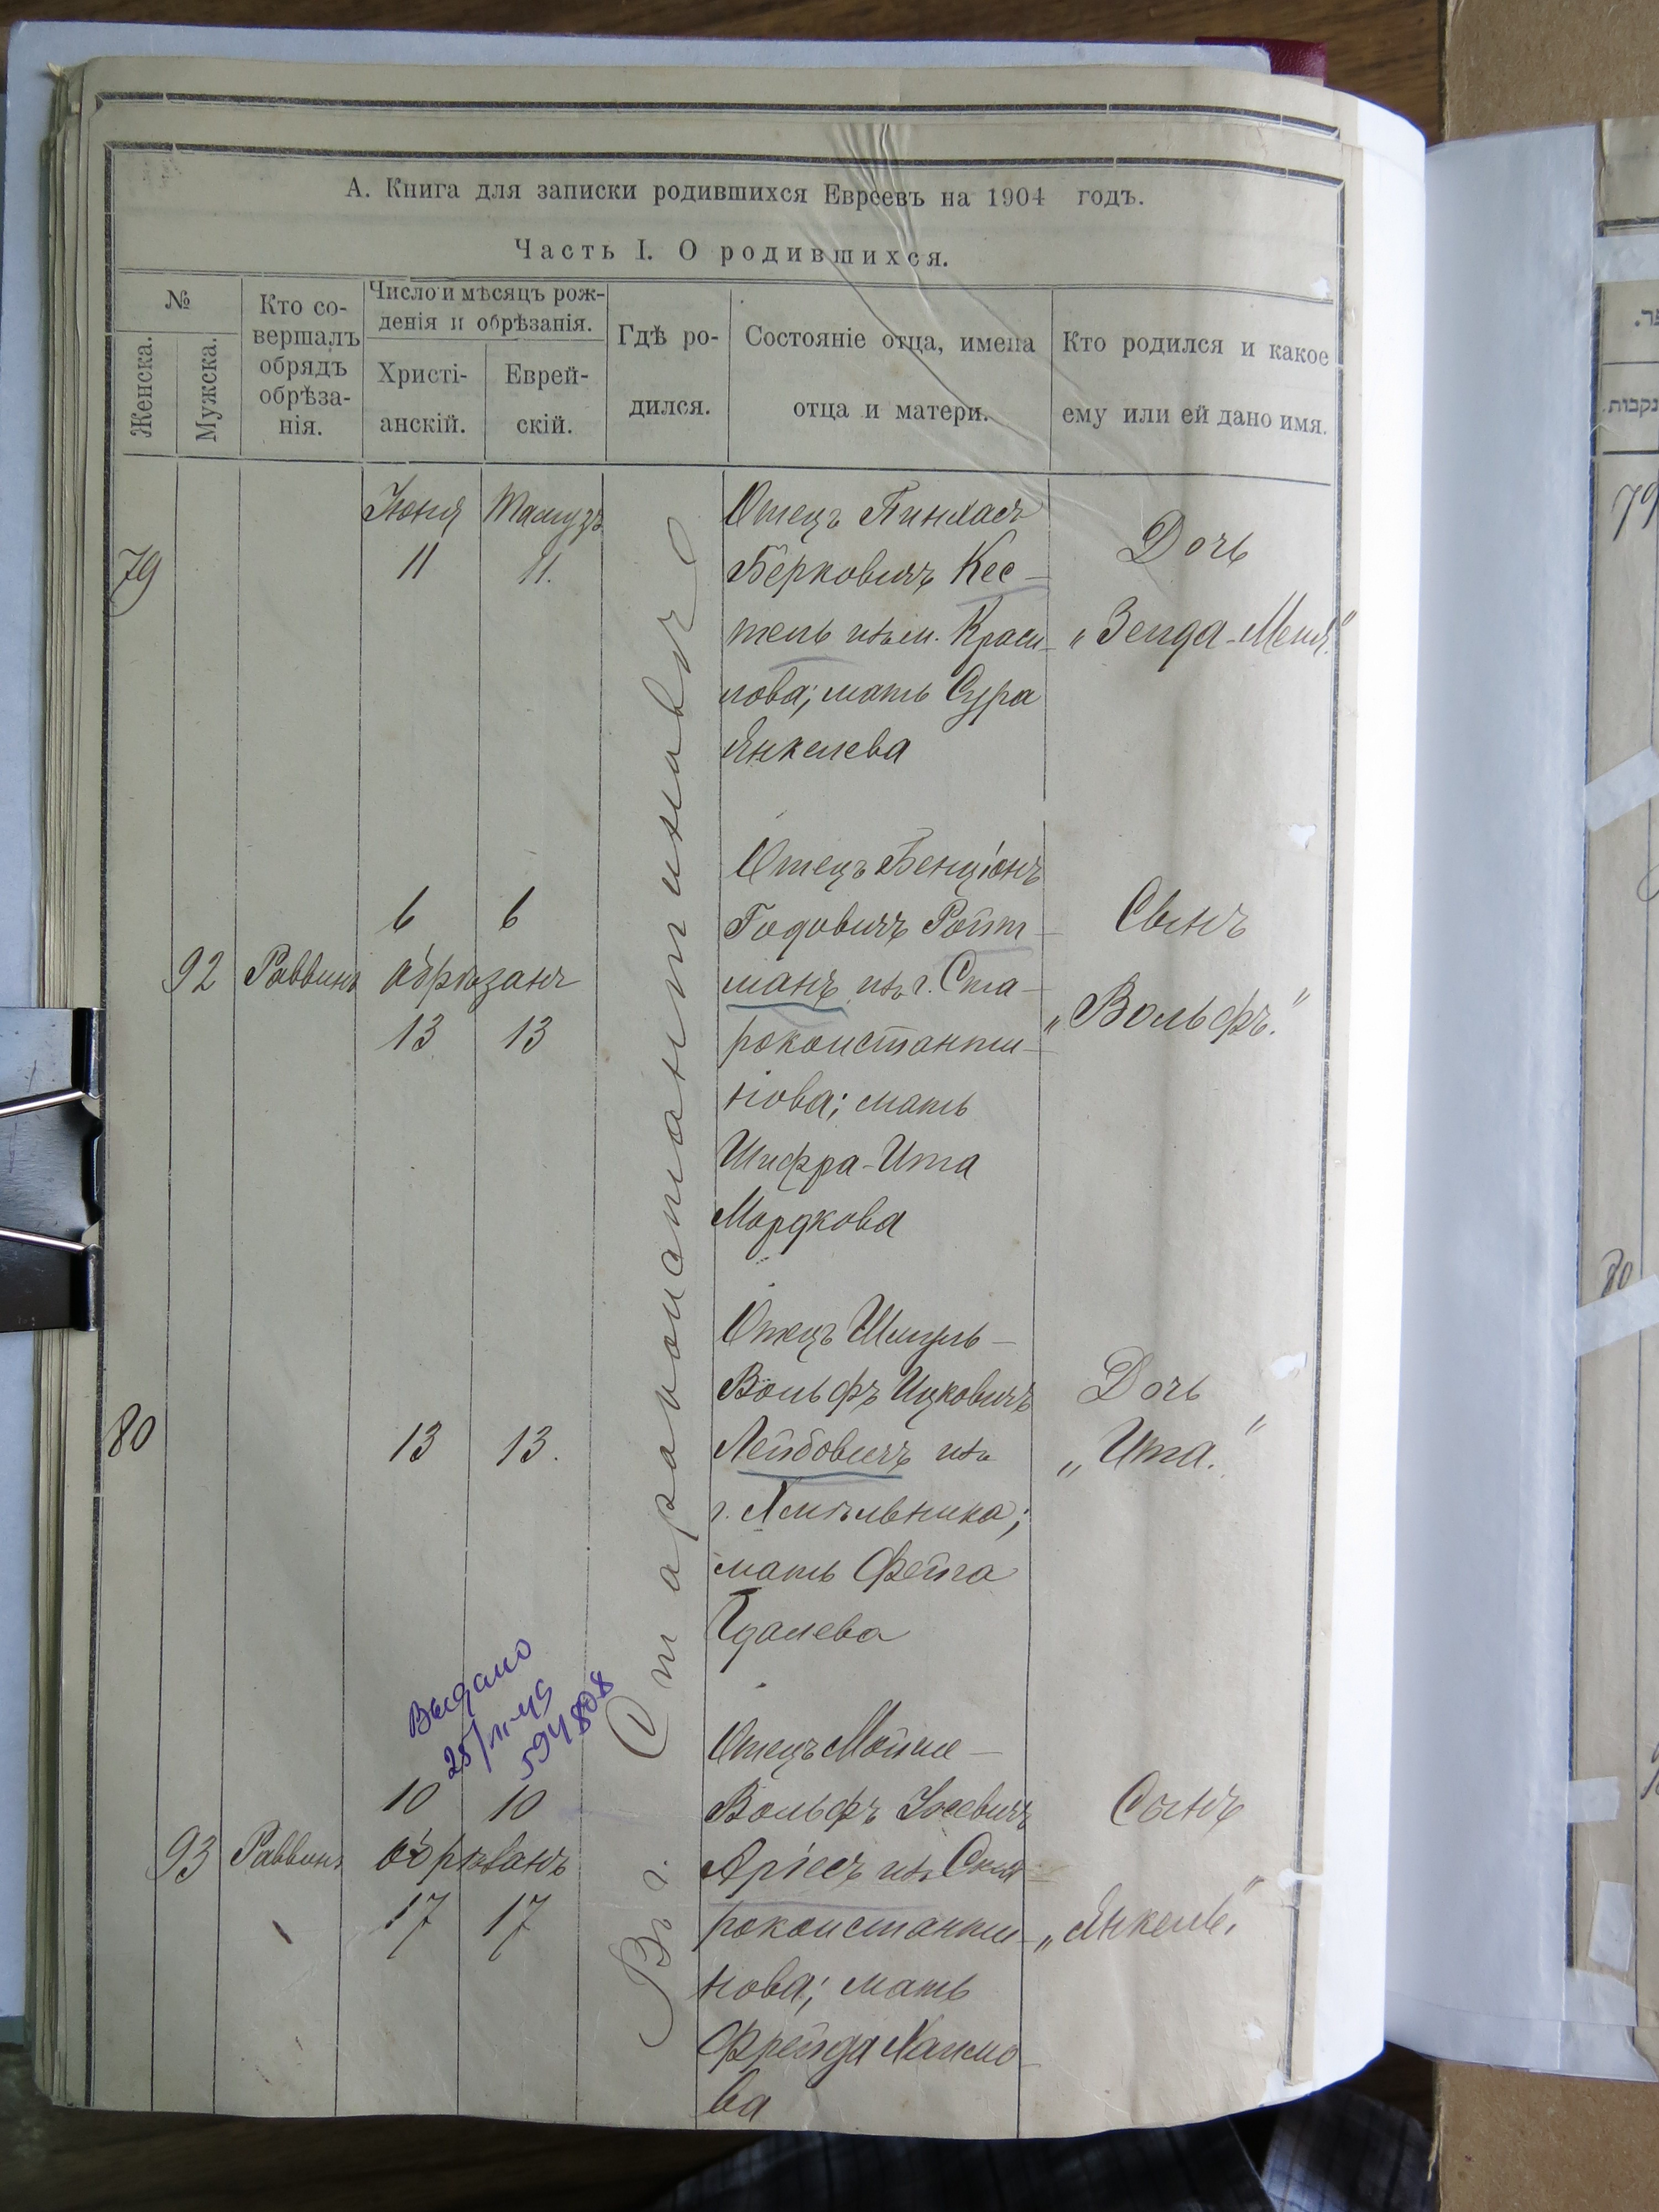 А. Книга для записки родившихся Евреевъ на 1904 годъ.
Часть I. О родившихся.
№
Женска.
Мужска.
Кто со-
вершалъ
обрядъ
обрѣза-
нія.
Число и мѣсяцъ рож-
денія и обрѣзанія.
Христі-
анскій.
Еврей-
скій.
Гдѣ ро-
дился.
Состояніе отца, имена
отца и матери.
Кто родился и какое
ему или ей дано имя.
Въ г. Староконстантиновѣ
79
Іюня Тамузъ
11 11.
Отецъ Пинхасъ
Берковичъ Кес-
тель изъ м. Краси-
лова; мать Сура
Янкелева
Дочь
92
Раввинъ
6 6
обрѣзанъ
13 13
Отецъ Бенціонъ
Годовичъ Ройт-
манъ изъ г. Ста-
роконстанти-
нова; мать
Шифра-Ита
Мордкова
Сынъ
„Вольфъ."
80
13 13.
Отецъ Шмуль-
Вольфъ Ицковичъ
Лейбовичъ изъ
г. Хмѣльника;
мать Фейга
Гдалева
Дочь
„Ита."
Выдано
93
Раввинъ
10 10
обрѣзанъ
17 17
Отецъ Мойше-
Вольфъ Іосевичъ
Аріесъ изъ Ста-
роконстанти-
нова; мать
Фрейда Хаимо-
ва
Сынъ
„Янкель."
79
80